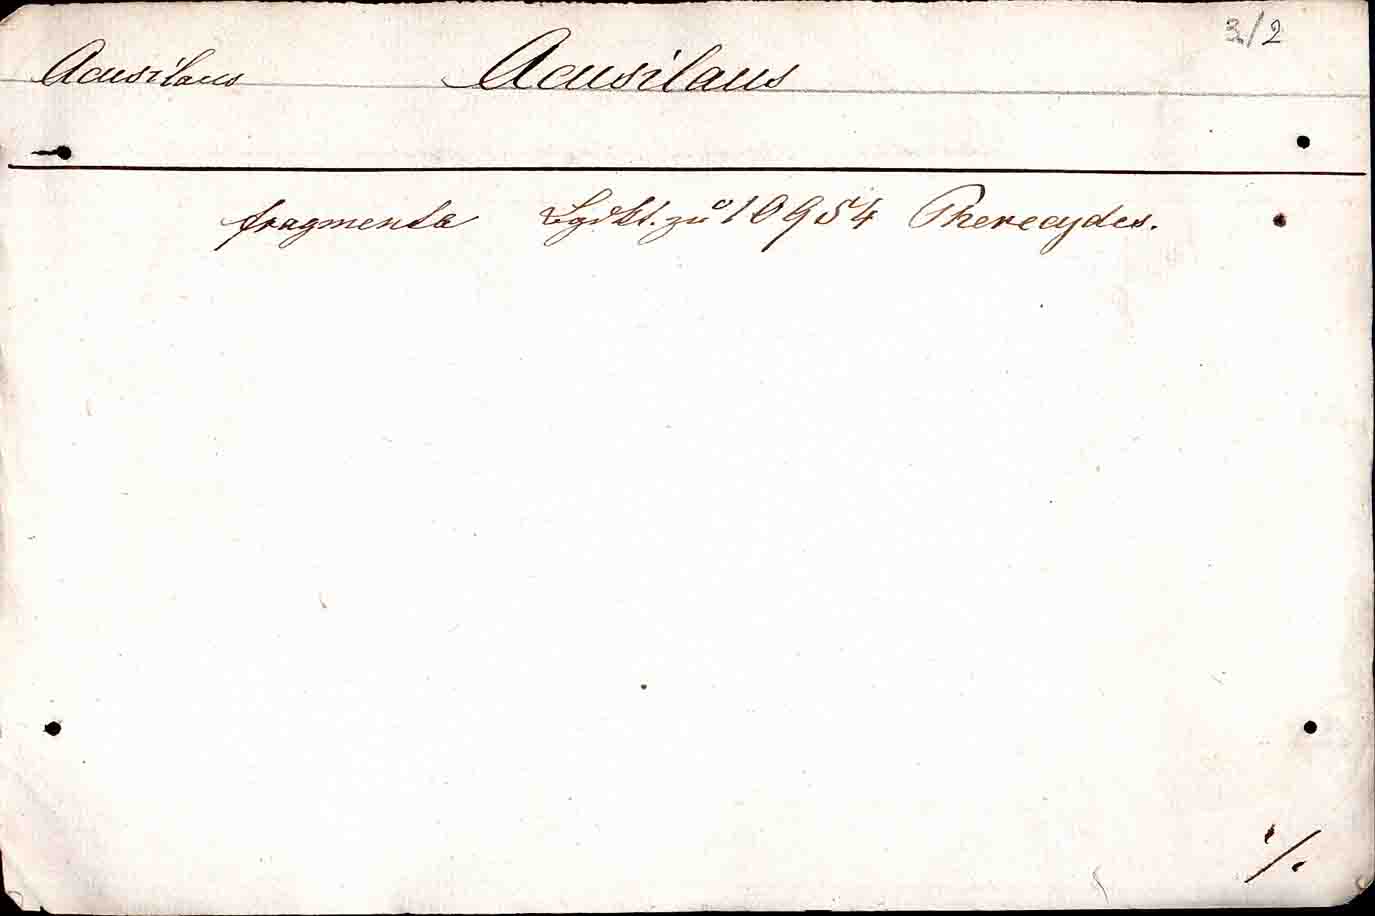 3/2
Acusilaus Acusilaus
fragmenta zu 10954 Pherecydes.
./.